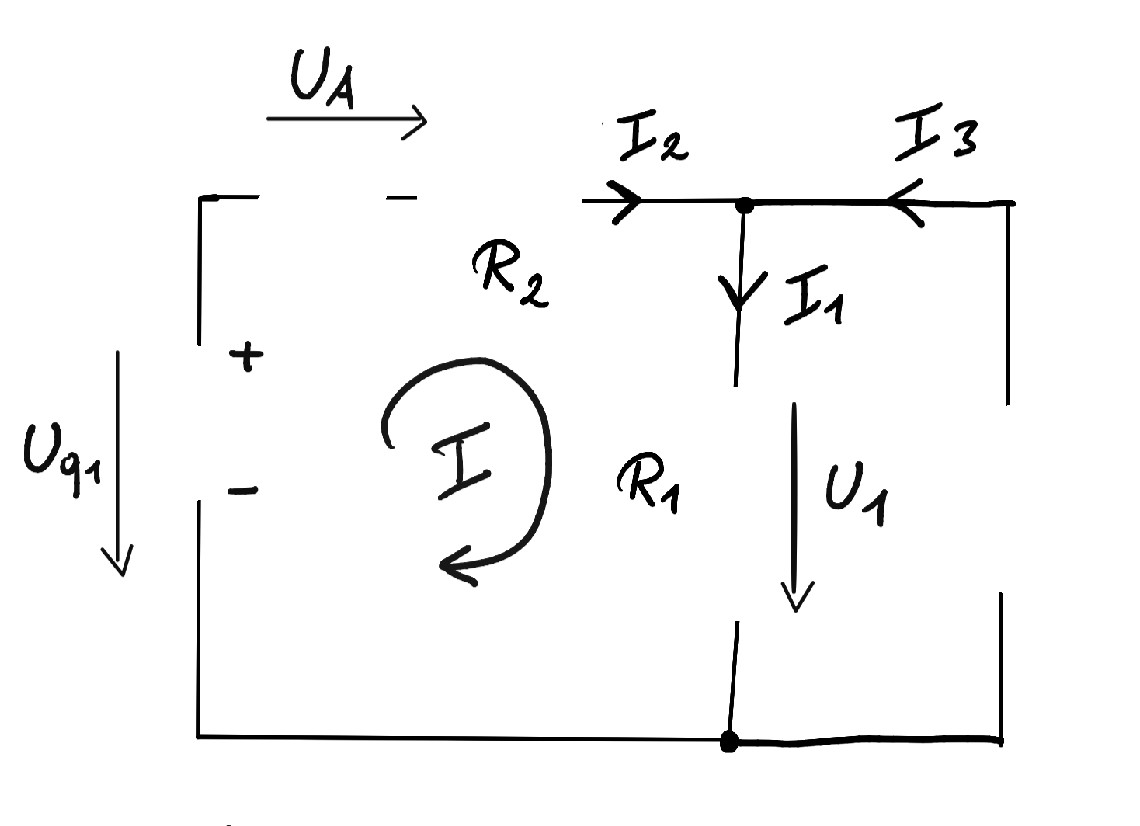 U_A
I_2
I_3
R_2
I_1
+
U_q1
I
R_1
U_1
-